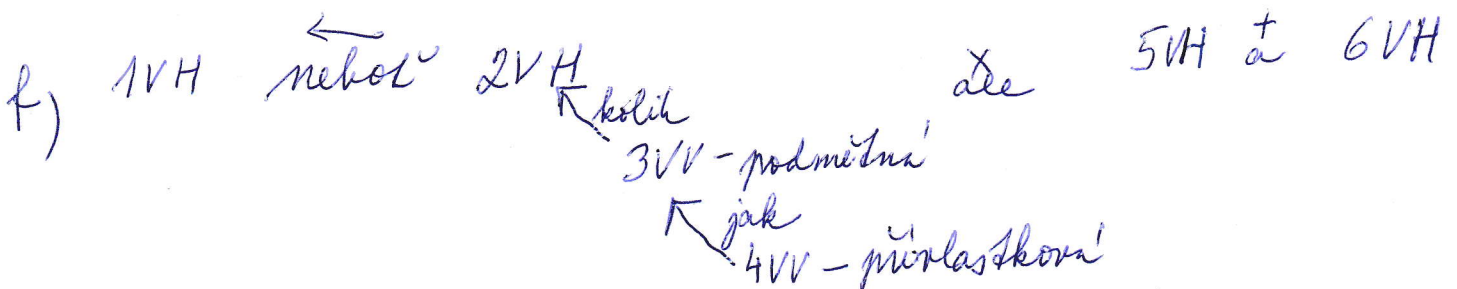 f) 1VH neboť 2VH ale 5VH a 6VH
kolik
3VV - podmětná
jak
4VV - přívlastková